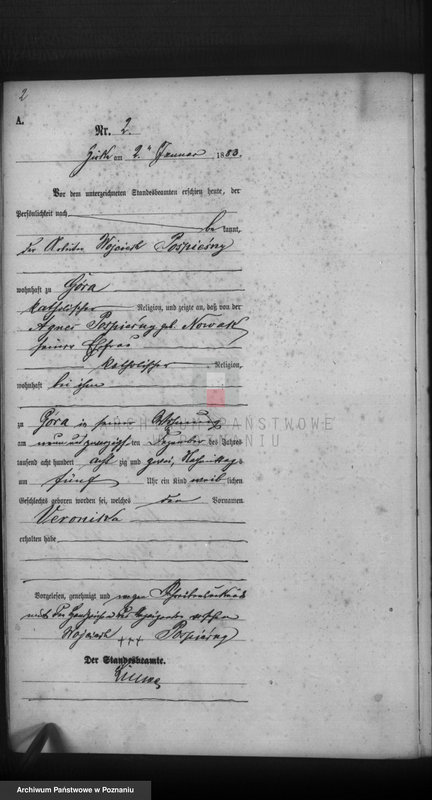 2
A.
Nr. 2.
am 2. Januar 1883.
Vor dem unterzeichneten Standesbeamten erschien heute, der
Persönlichkeit nach
be kannt,
der Arbeiter Wojciech Pospieśny
wohnhaft zu Góra
katholischer Religion, und zeigte an, daß von der
Agnes Pospieśny geb. Nowak
seiner Ehefrau
katholischer Religion,
wohnhaft bei ihm
zu Góra in seiner Wohnung
am neunundzwanzigsten Dezember des Jahres
tausend acht hundert achtzig und zwei, Nachmittags
um fünf Uhr ein Kind weiblichen
Geschlechts geboren worden sei, welches den Vornamen
Veronika
erhalten habe
Vorgelesen, genehmigt und wegen
mit den Handzeichen des versehen
Wojciech +++ Pospieśny
Der Standesbeamte.
ARCHIWUM PAŃSTWOWE
W POZNANIU
Archiwum Państwowe w Poznaniu